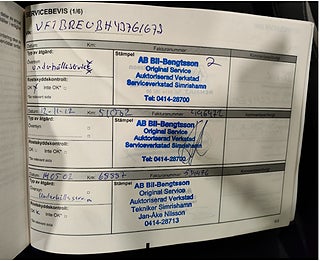 SERVICEBEVIS (1/6)
VF1BREUBH43761673
Typ av åtgärd:
Km:
Fakturanummer:
Översyn
Underhållsservice
Rostskyddskontroll:
OK
Inte OK*
*Se relevant sida
Stämpel
AB Bil-Bengtsson
Original Service
Auktoriserad Verkstad
Serviceverkstad Simrishamn
Tel: 0414-28700
2
Datum: 12-11-12
Km: 51032
Fakturanummer:
Typ av åtgärd:
Översyn
Rostskyddskontroll:
OK
Inte OK*
*Se relevant sida
Stämpel
AB Bil-Bengtsson
Original Service
Auktoriserad Verkstad
Serviceverkstad Simrishamn
Tel: 0414-28700
Datum:
Km:
Fakturanummer:
Typ av åtgärd:
Översyn
Underhållsserv
Rostskyddskontroll:
OK
Inte OK*
*Se relevant sida
Stämpel
AB Bil-Bengtsson
Original Service
Auktoriserad Verkstad
Tekniker Simrishamn
Jan-Åke Nilsson
0414-28713